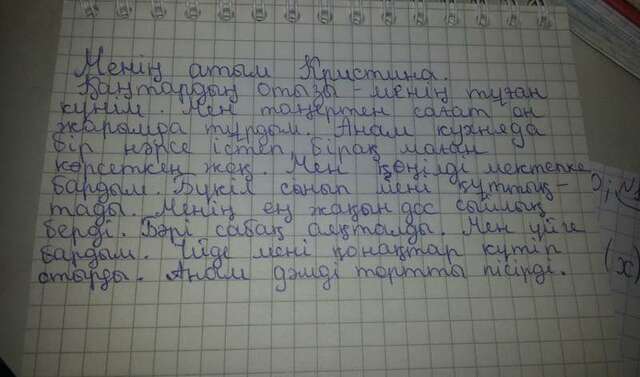 Менің атым Кристина.
Қаңтардың отызы - менің туған
күнім. Мен таңертен сағат он
жарымда тұрдым. Анам кухняда
бір нәрсе істеп, бірақ маған
көрсеткен жоқ. Мен көңілді мектепке
бардым. Бүкіл сынып мені құттық-
тады. Менің ең жақын дос сыйлық
берді. Бәрі сабақ аяқталды. Мен үйге
бардым. Үйде мені қонақтар күтіп
отырды. Анам дәмді тортты пісірді.
(x)